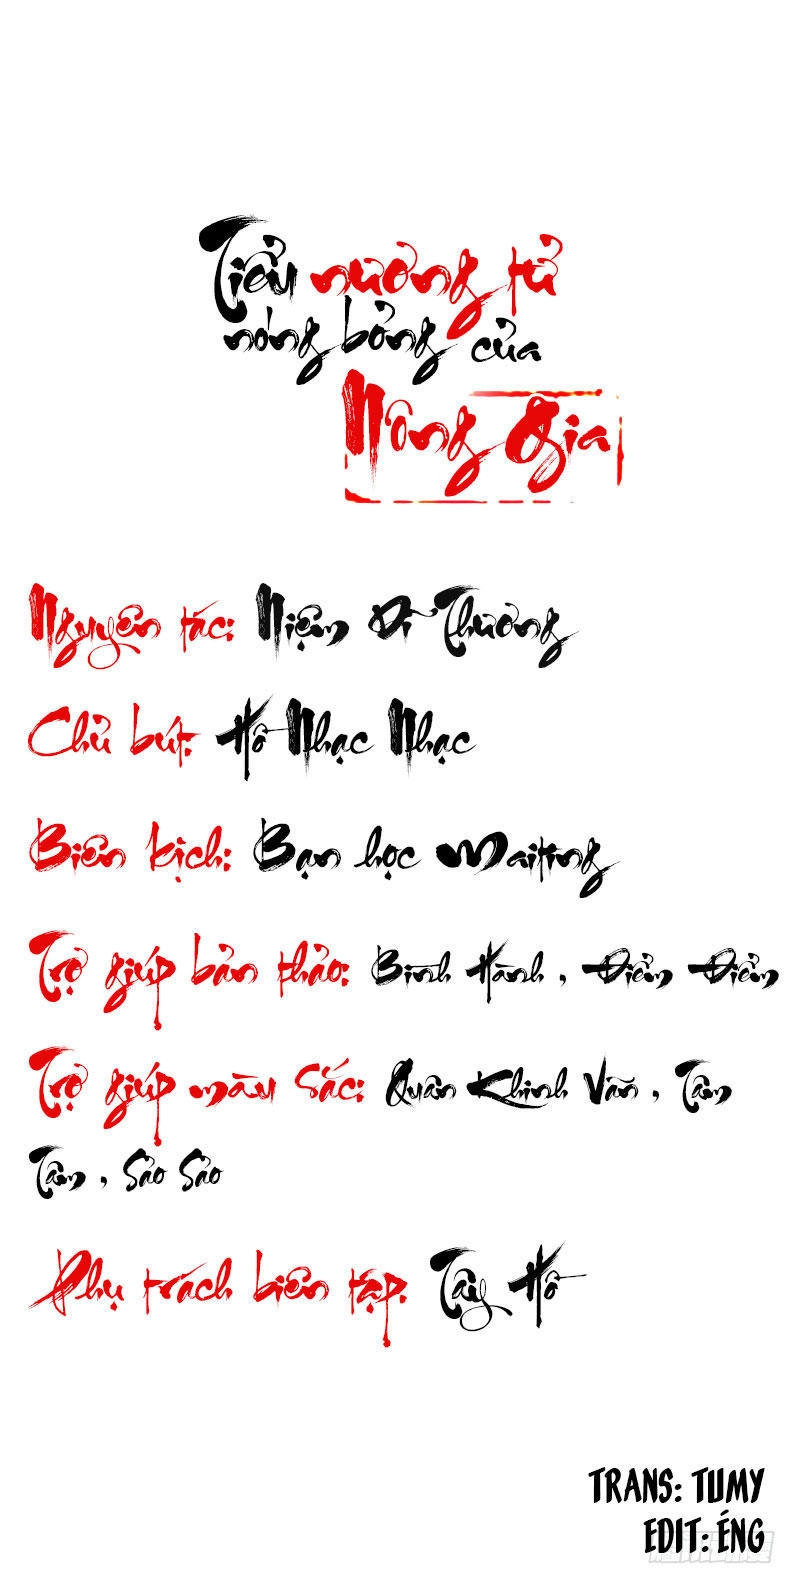 Tiểu nương tử
nóng bỏng của
Nông gia
Nguyên tác: Niệm Dĩ Thương
Chủ bút: Hồ Nhạc Nhạc
Biên kịch: Bạn học Maiting
Trợ giúp bản thảo: Bình Hành, Điểm Điểm
Trợ giúp màu sắc: Quân Khinh Vãn, Tâm
Tâm, Sảo Sảo
Phụ trách biên tập: Tây Hồ
TRANS: TUMY
EDIT: ÉNG